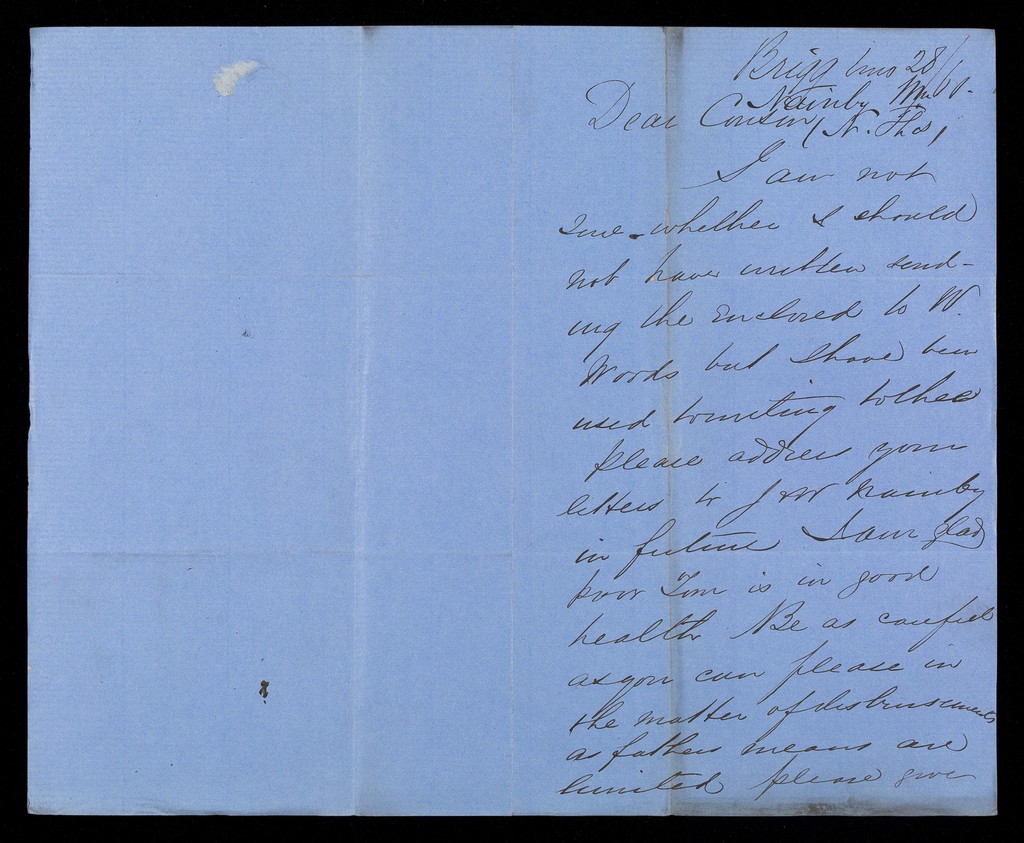 Brigg 28/60.
Nainby Wm
Dear Cousin, (N. Thos,
I am not
sure whether I should
not have written send-
ing the enclosed to W.
Woods but I have been
used to writing to thee
please address your
letters to J & W Nainby
in future I am glad
poor Tom is in good
health Be as careful
as you can please in
the matter of disbursements
as fathers means are
limited please give